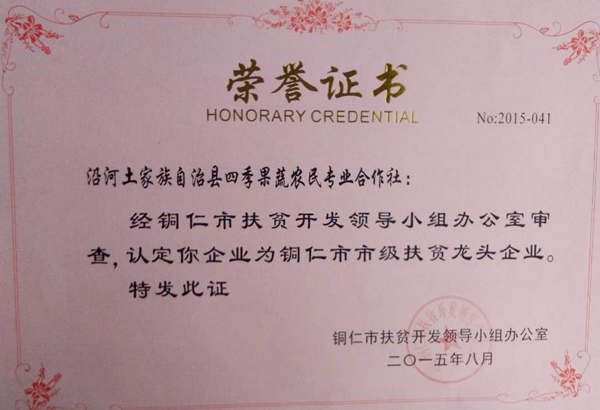 荣誉证书
HONORARY CREDENTIAL
No:2015-041
沿河土家族自治县四季果蔬农民专业合作社：
经铜仁市扶贫开发领导小组办公室审
查，认定你企业为铜仁市市级扶贫龙头企业。
特发此证
铜仁市扶贫开发领导小组办公室
二〇一五年八月